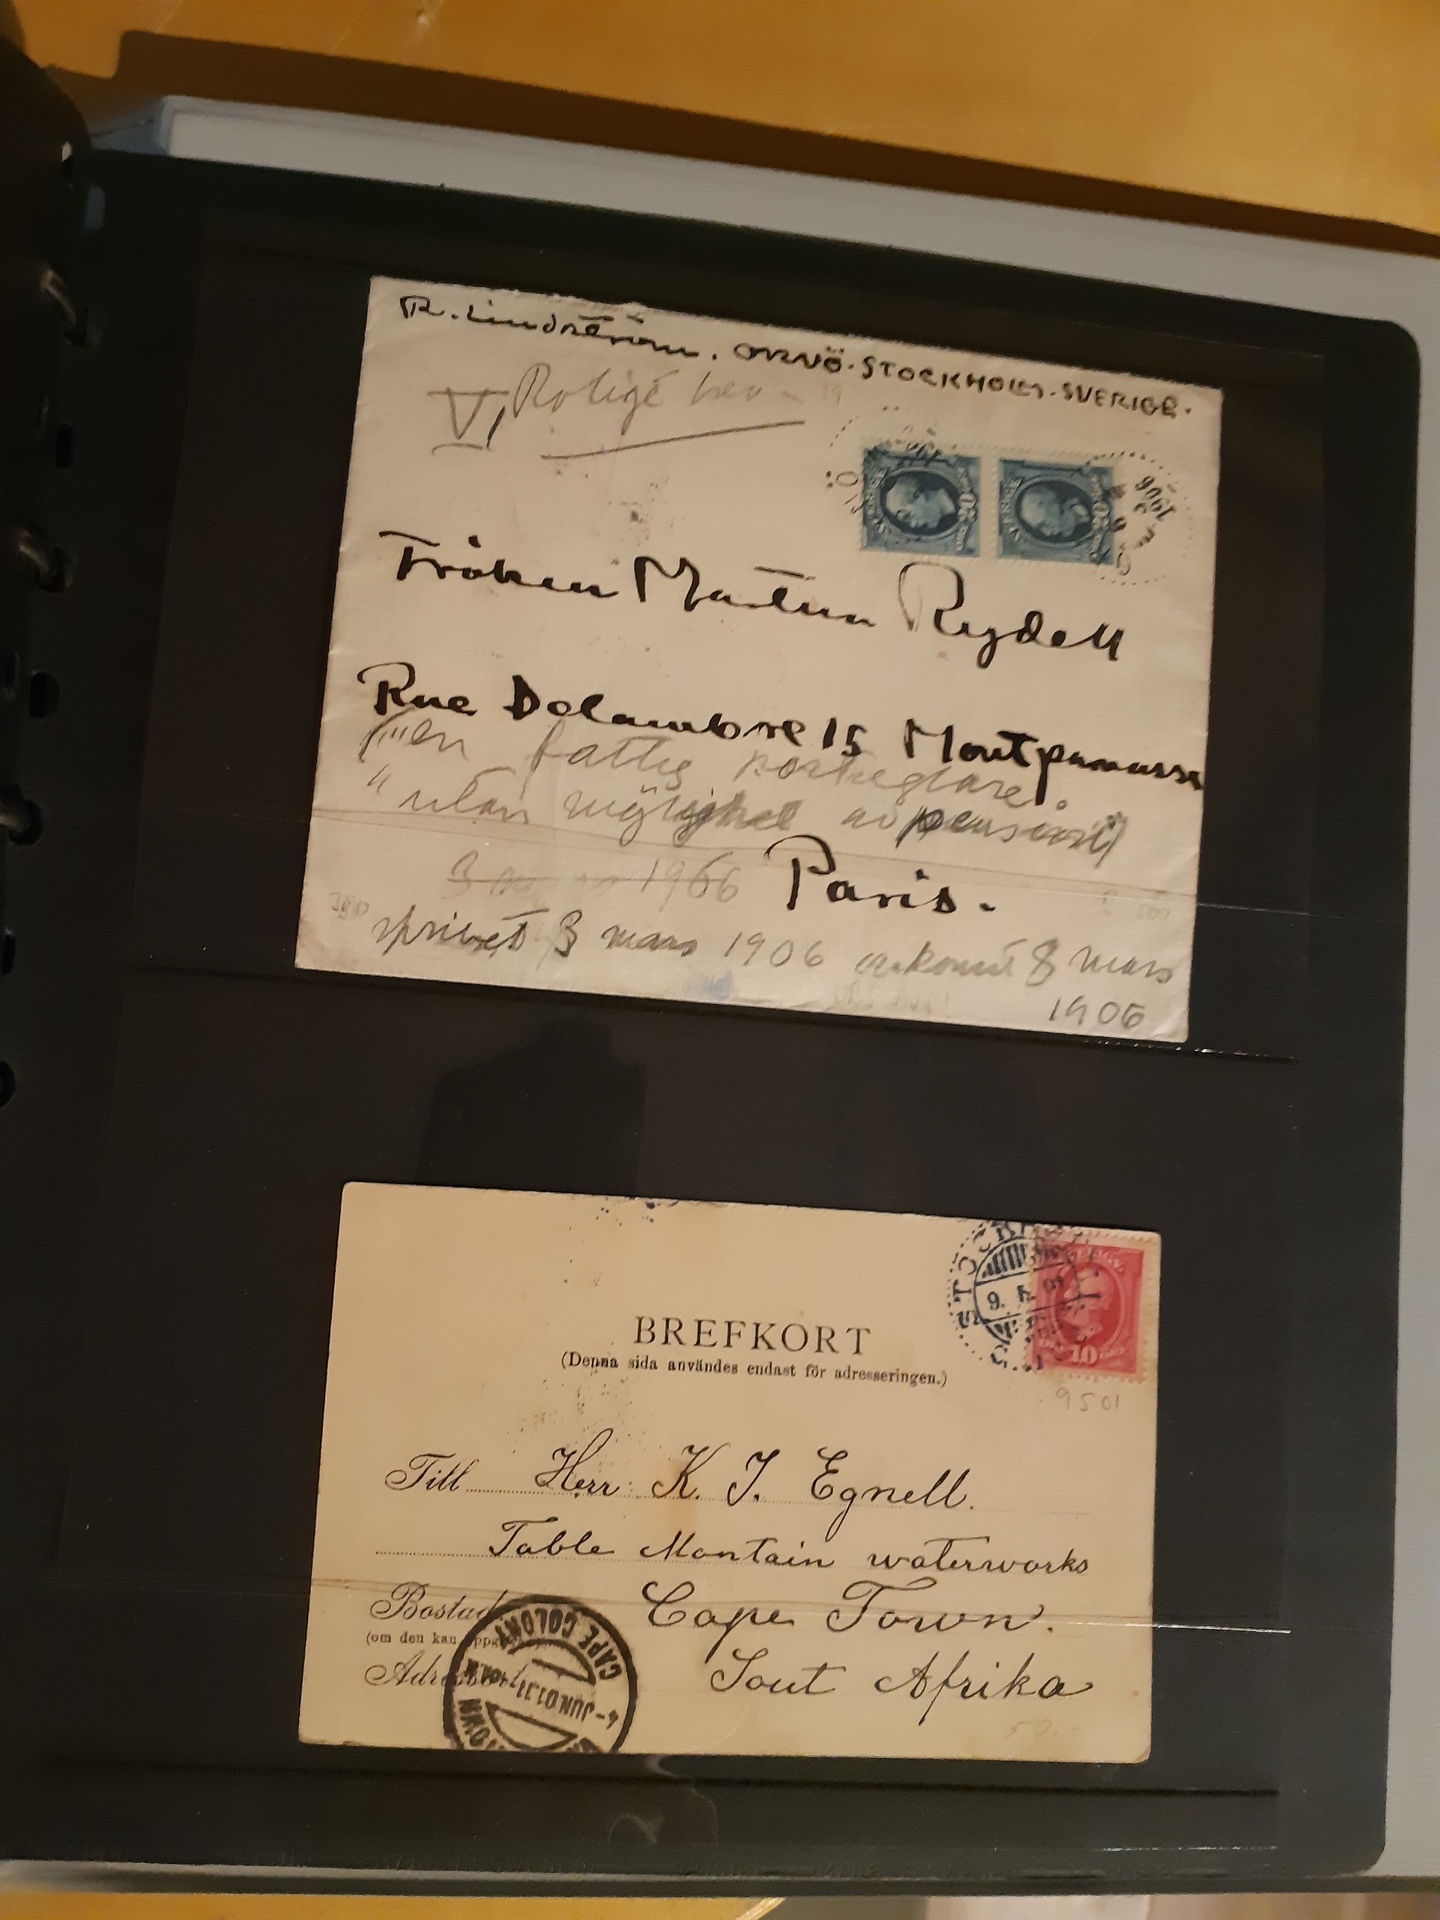 R. Lindström. ORNÖ. STOCKHOLM. SVERIGE.
VI Roligt brev
1906
Fröken Martina Rydell
Rue Delambre 15 Montparnasse
"en fattig
"utan möjlighet av pension")
Paris.
1906
skrivet 3 mars 1906 ankomst 8 mars
1906
STOCKHOLM
9. 5. 01
10
BREFKORT
(Denna sida användes endast för adresseringen.)
9501
Till Herr K. J. Egnell.
Table Montain waterworks
Bostad Cape Town.
(om den kan
Sout Afrika
CAPE COLONY
JUN.01.11
50.-